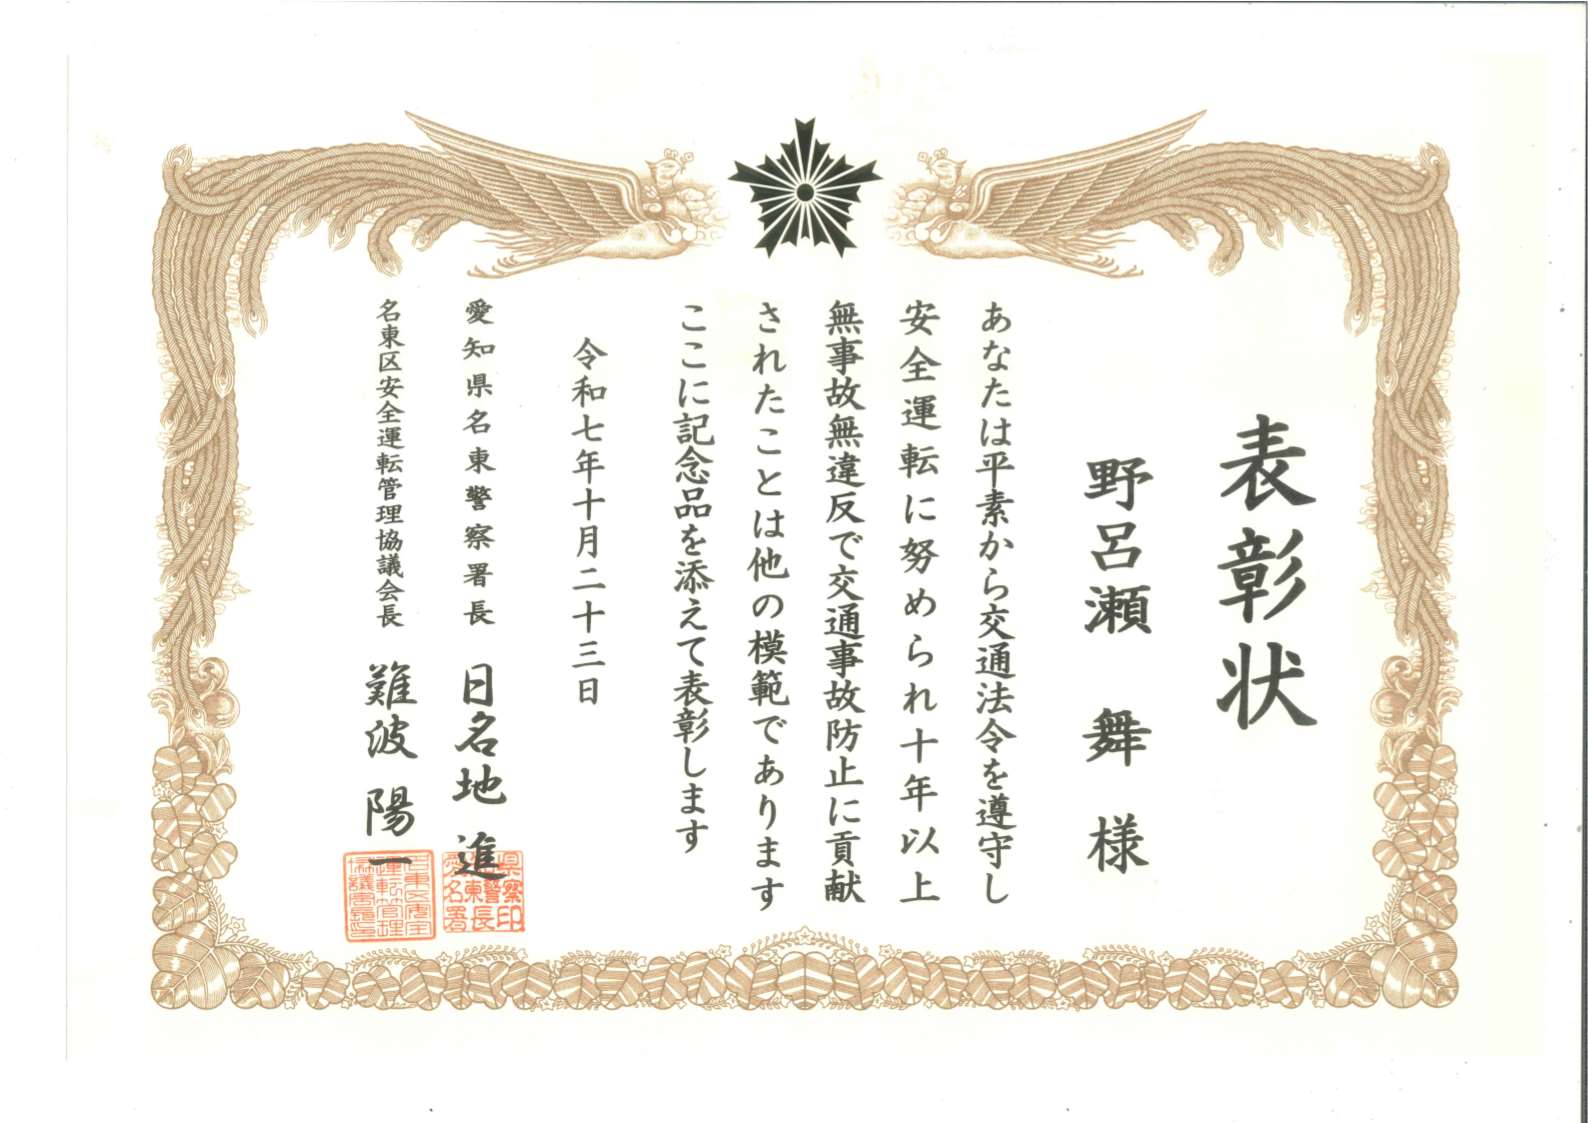 表彰状
野呂瀬 舞 様
あなたは平素から交通法令を遵守し
安全運転に努められ十年以上
無事故無違反で交通事故防止に貢献
されたことは他の模範であります
ここに記念品を添えて表彰します
令和七年十月二十三日
愛知県名東警察署長 日名地 進
名東区安全運転管理協議会長 難波 陽一